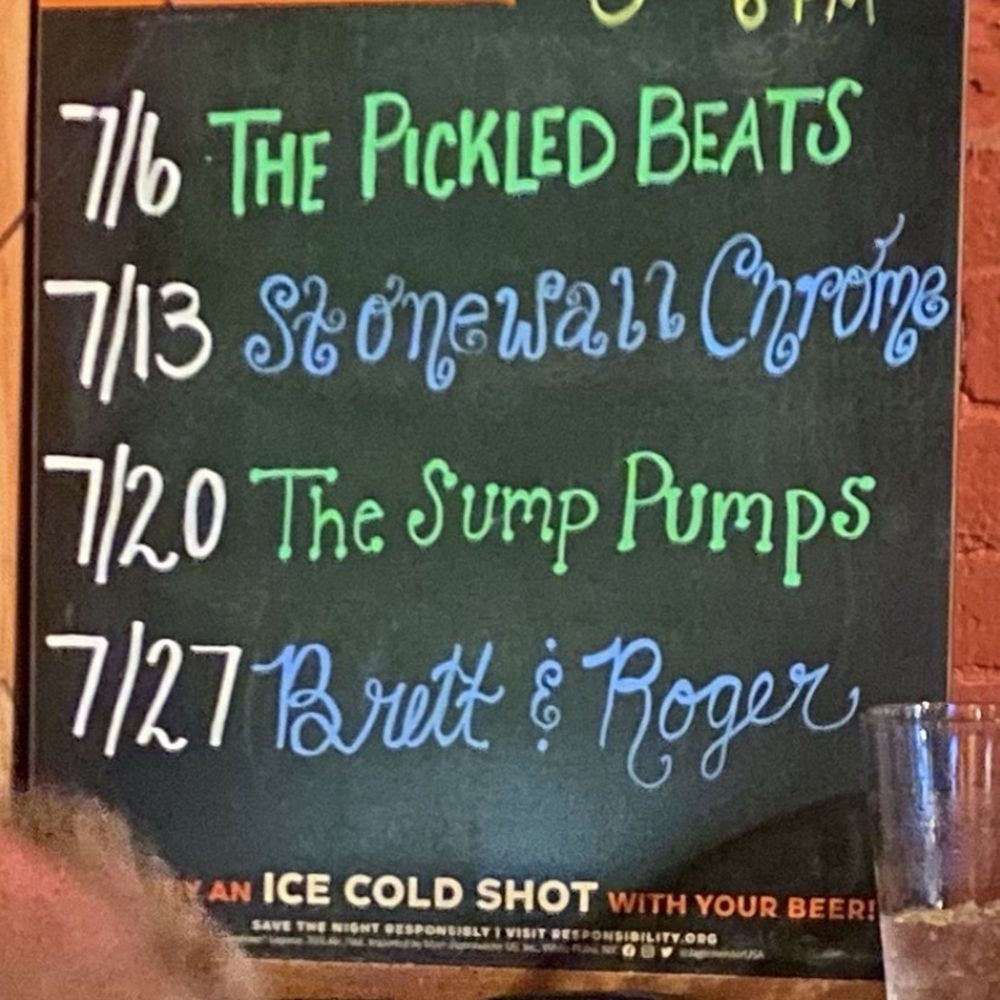 6 PM
7/6 THE PICKLED BEATS
7/13 Stonewall Chrome
7/20 The Sump Pumps
7/27 Brett & Roger
AN ICE COLD SHOT WITH YOUR BEER!
SAVE THE NIGHT RESPONSIBLY | VISIT RESPONSIBILITY.ORG